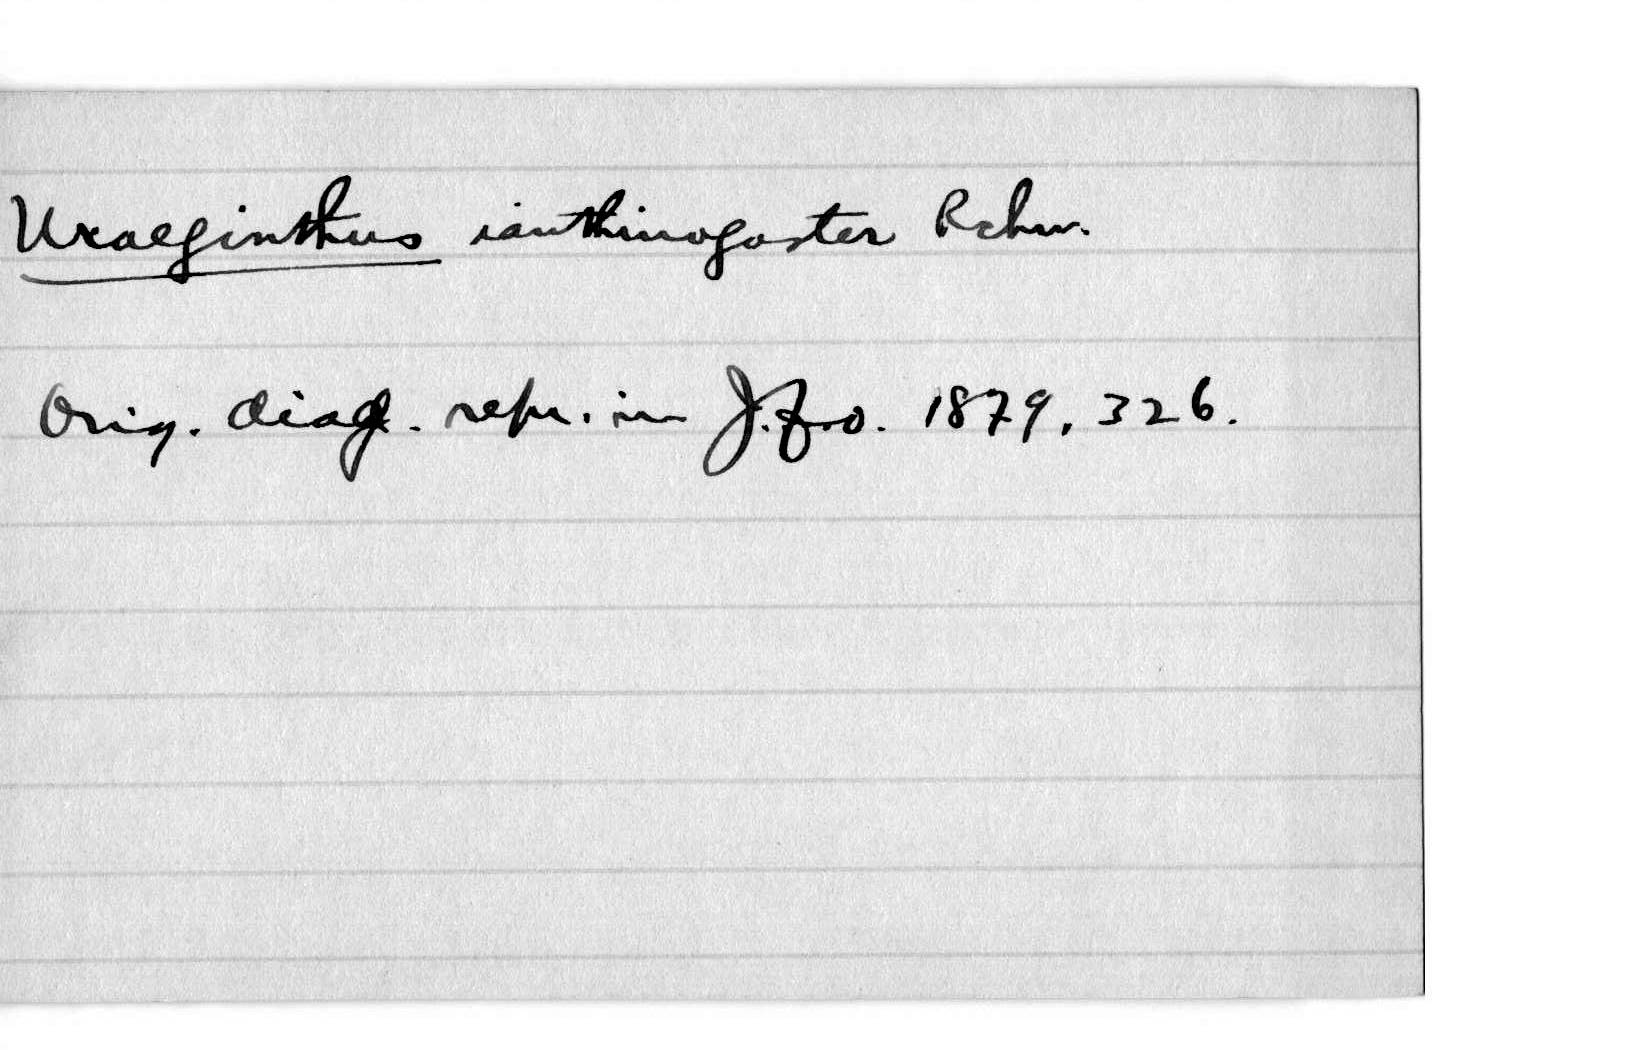 Uraeginthus ianthinogaster Rchw.
Orig. diag. repr. in J.f.o. 1879, 326.